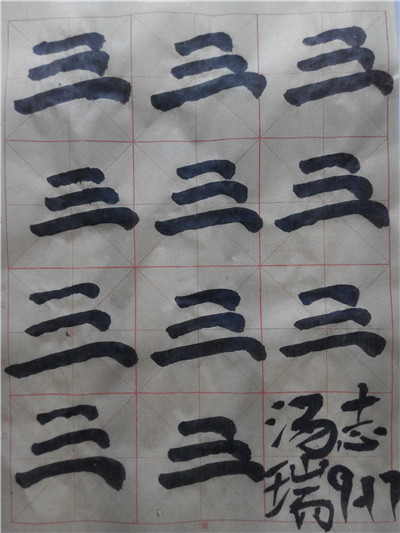 三三三
三三三
三三三
三三
汤志
瑞9.17